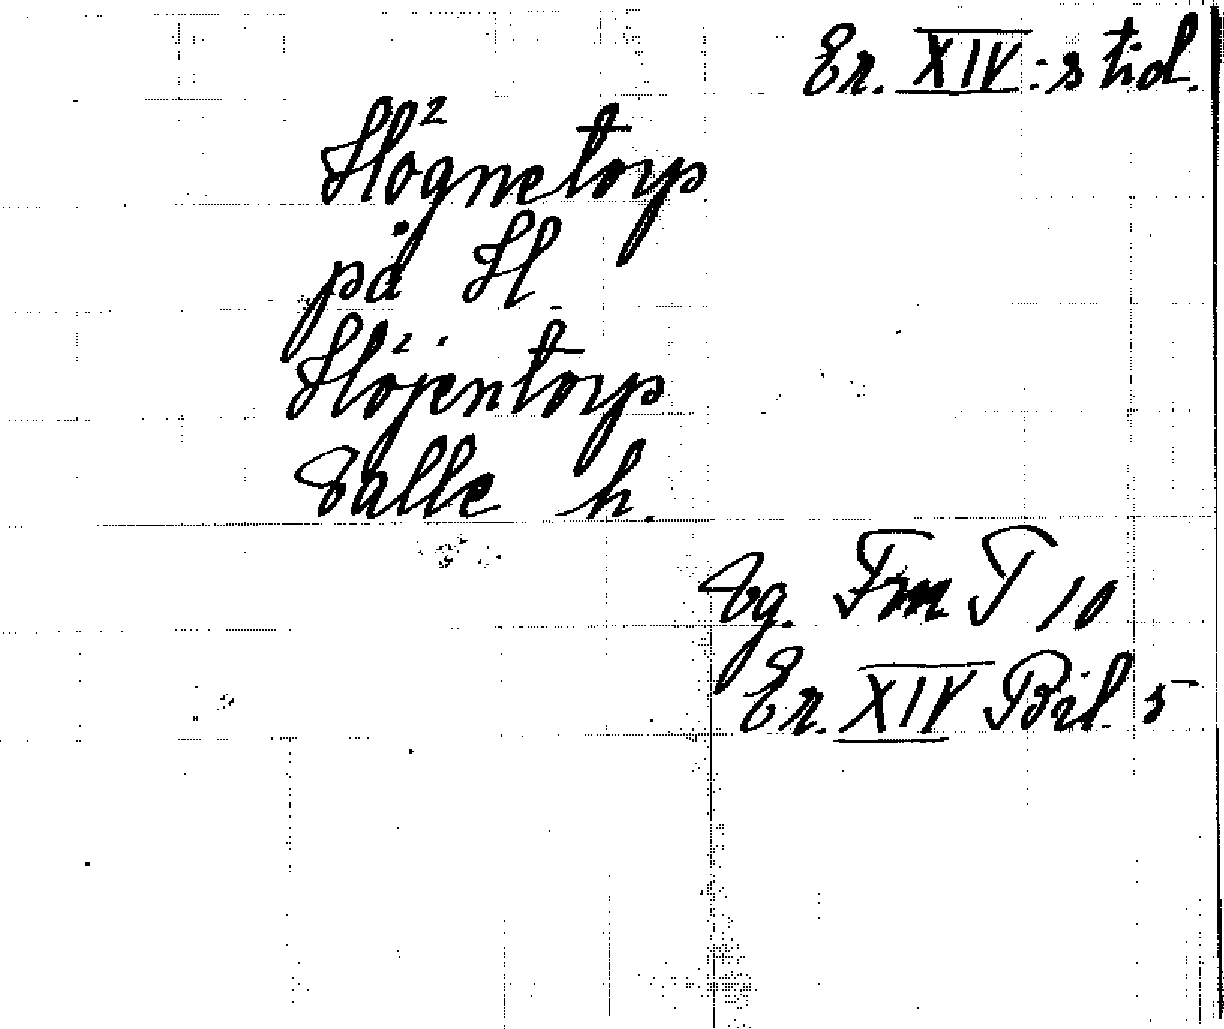 Er. XIV:s tid.
Hognetorp
på H.
Höjentorp
Valle h.
Vg. Fm T 10
Er. XIV Bil 5